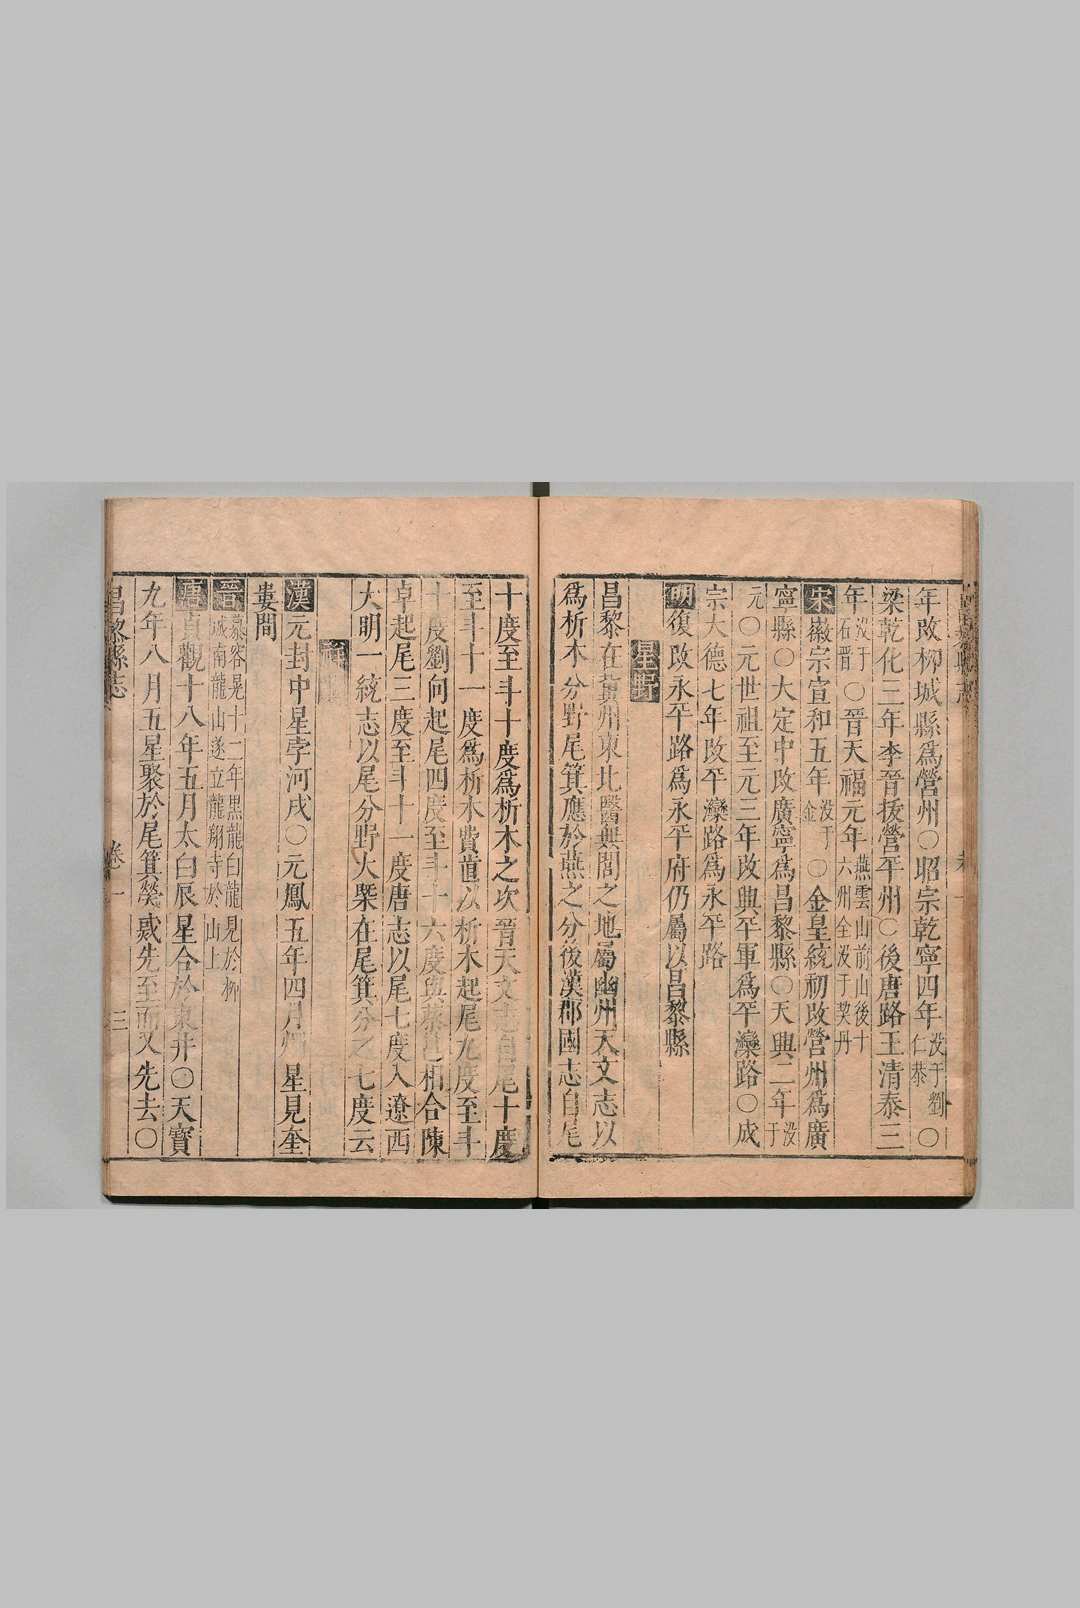 年改柳城縣爲營州○昭宗乾寧四年没于劉仁恭○
梁乾化三年李晉拔營平州○後唐路王清泰三
年没于石晋○晉天福元年燕雲山前山後十六州全没于契丹
宋徽宗宣和五年没于金○金皇統初改營州爲廣
寧縣○大定中改廣寧爲昌黎縣○天興二年没于
元○元世祖至元三年改興平軍爲平灤路○成
宗大德七年改平灤路爲永平路
明復改永平路爲永平府仍屬以昌黎縣
星野
昌黎在冀州東北醫無閭之地屬幽州天文志以
爲析木分野尾箕應於燕之分後漢郡國志自尾
十度至斗十度爲析木之次晉天文志自尾十度
至斗十一度爲析木費直以析木起尾九度至斗
十度劉向起尾四度至斗十六度與蔡邕相合陳
卓起尾三度至斗十一度唐志以尾七度入遼西
大明一統志以尾分野大槩在尾箕分之七度云
祥
漢元封中星孛河戍○元鳳五年四月州星見奎
婁間
晉慕容晃十二年黑龍白龍見於柳城南龍山遂立龍翔寺於山上
唐貞觀十八年五月太白辰星合於東井○天寶
九年八月五星聚於尾箕熒惑先至而又先去○
昌黎縣志 卷一 三